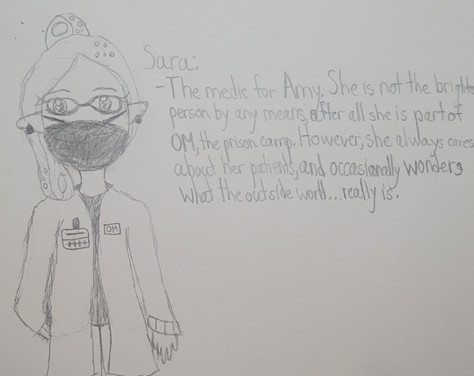 Sara:
- The medic for Amy. She is not the brightest
person by any means, after all she is part of
OM, the prison camp. However, she always cares
about her patients, and occasionally wonders
what the outside world... really is.
OM